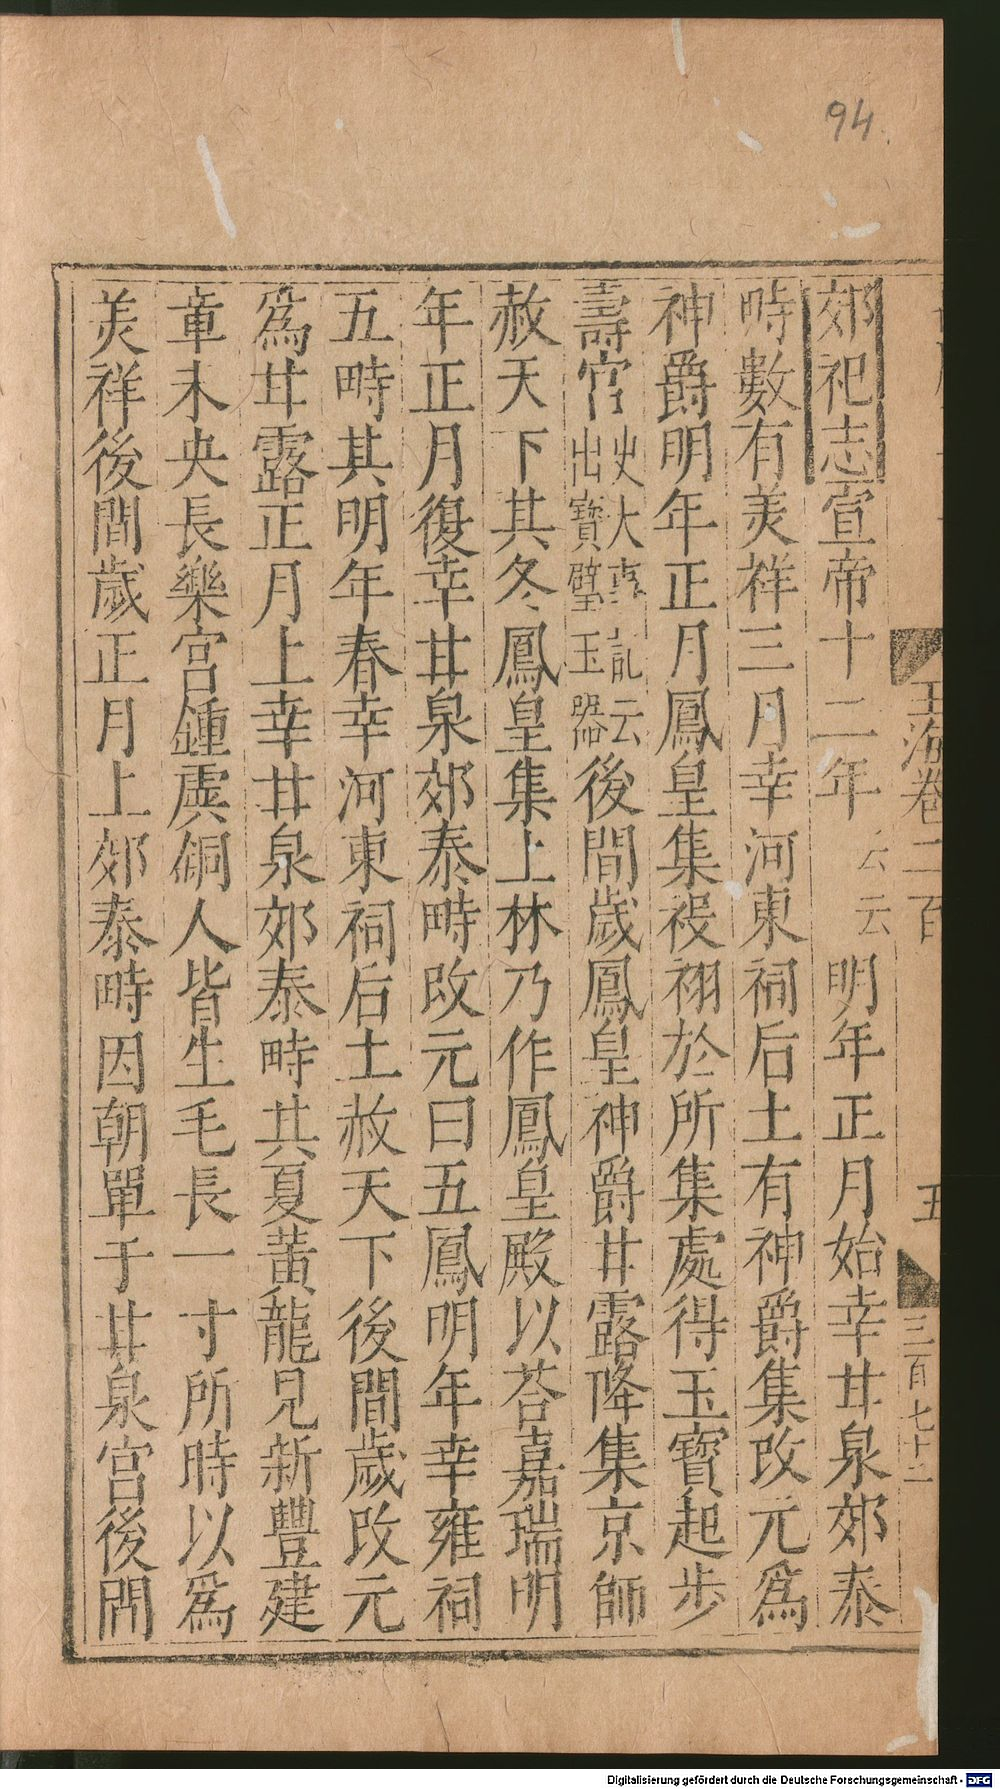 94
郊祀志宣帝十二年云云明年正月始幸甘泉郊泰
畤數有美祥三月幸河東祠后土有神爵集改元爲
神爵明年正月鳳皇集祋祤於所集處得玉寶起步
壽宫史大真記云出寶璧玉器後間歲鳳皇神爵甘露降集京師
赦天下其冬鳳皇集上林乃作鳳皇殿以荅嘉瑞明
年正月復幸甘泉郊泰畤改元曰五鳳明年幸雍祠
五畤其明年春幸河東祠后土赦天下後間歲改元
爲甘露正月上幸甘泉郊泰畤其夏黃龍見新豐建
章未央長樂宫鍾虡銅人皆生毛長一寸所時以爲
美祥後間歲正月上郊泰畤因朝單于甘泉宫後間
玉海卷二百
五
三百七十二
Digitalisierung gefördert durch die Deutsche Forschungsgemeinschaft - DFG